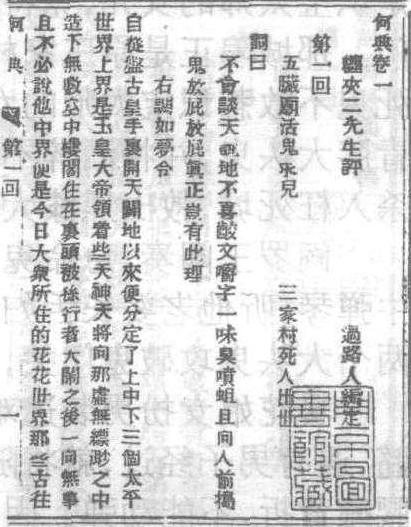 何典卷一
纏夾二先生評 過路人編定
第一回
五臟廟活鬼求兒 三家村死人出世
詞曰
不會談天說地不喜齩文嚼字一味臭噴蛆且向人前搗
鬼放屁放屁真正豈有此理
右調如夢令
自從盤古皇手裏開天闢地以來便分定了上中下三個太平
世界上界是玉皇大帝領着些天神天將向那虛無縹渺之中
造下無數空中樓閣住在裏頭被孫行者大鬧之後一向無事
且不必說他中界便是今日大衆所住的花花世界那些古往
何典 第一回 一